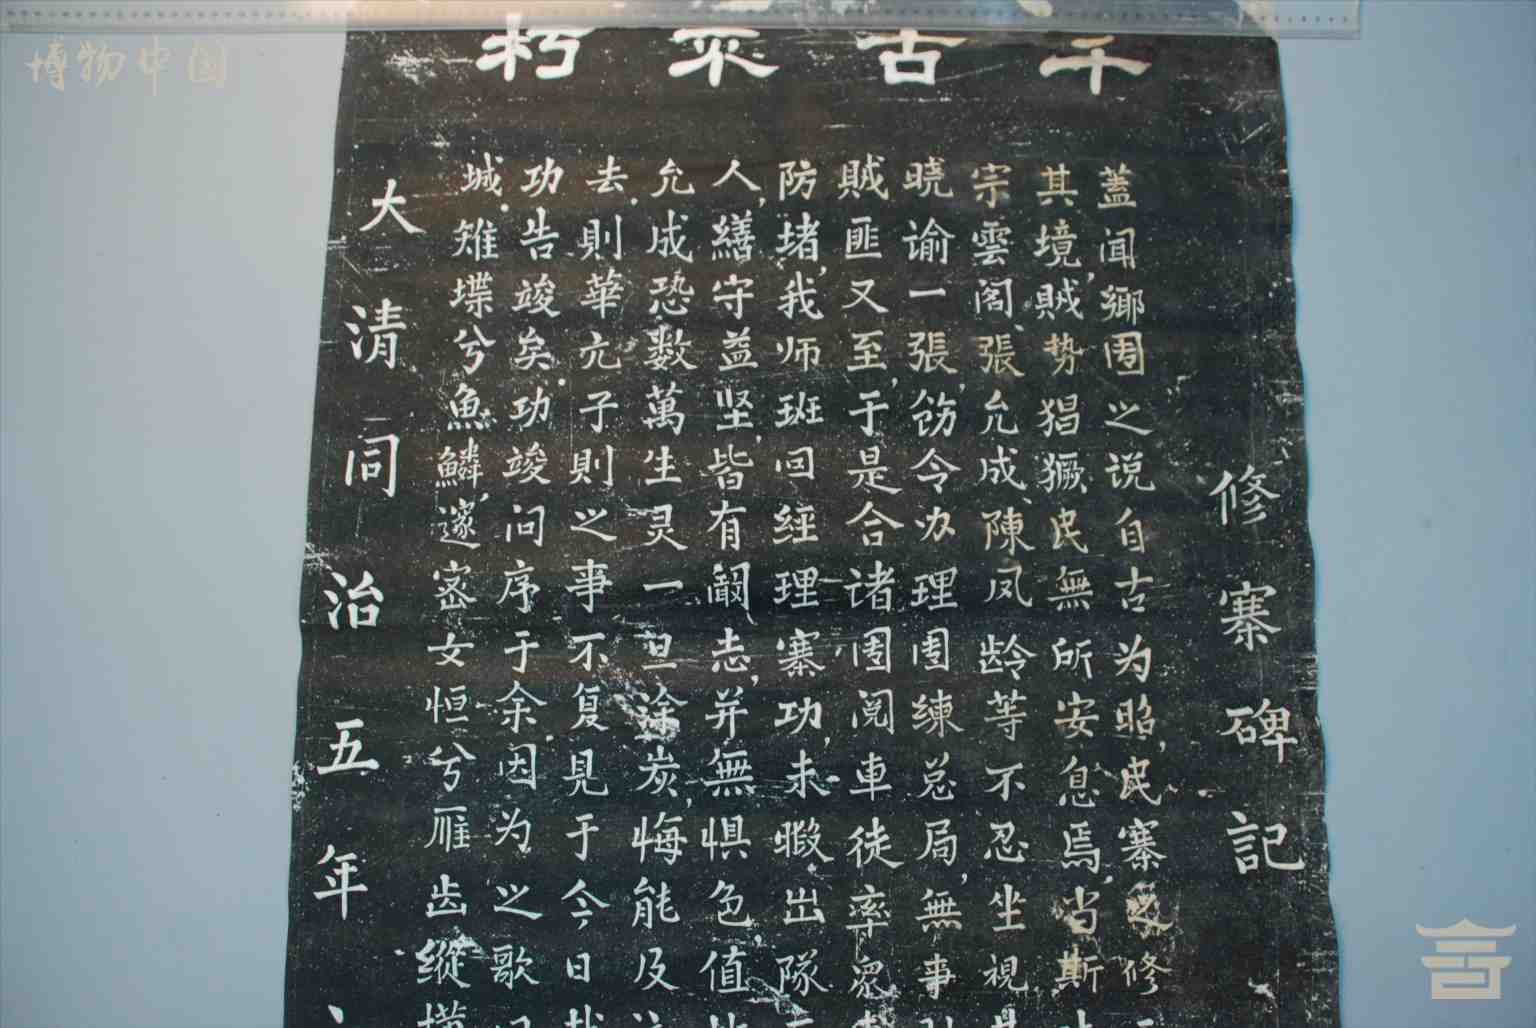 博物中国
千古不朽
修寨碑記
蓋闻鄉围之说自古为昭,民寨之修
其境,賊势猖獗,民無所安息焉,当斯
宗雲閣、張允成、陳凤龄等不忍坐視
晓谕一張,飭令办理围練总局,無事
賊匪又至,于是合诸围阅車徒率眾
防堵,我师班回經理寨功,未暇出隊
人,繕守益坚,皆有鬭志,并無惧色,值
允成恐数萬生灵一旦涂炭,悔能及
去.則華亢子則之事不复見于今日哉
功告竣矣.功竣问序于余.因为之歌曰
城.雉堞兮魚鱗,邃密女恒兮雁齿縱横
大清同治五年